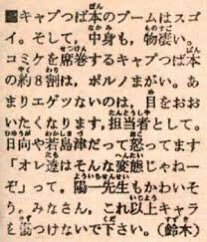 ■キャプつば本のブームはスゴ
イ。そして、中身も、物凄い。
コミケを席巻するキャプつば本
の約8割は、ポルノまがい。あ
まりエゲツないのは、目をおお
いたくなります。担当者として。
日向や若島津だって怒ってます
「オレ達はそんな変態じゃねー
ぞ」って。陽一先生もかわいそ
う。みなさん、これ以上キャラ
を傷つけないで下さい。(鈴木)